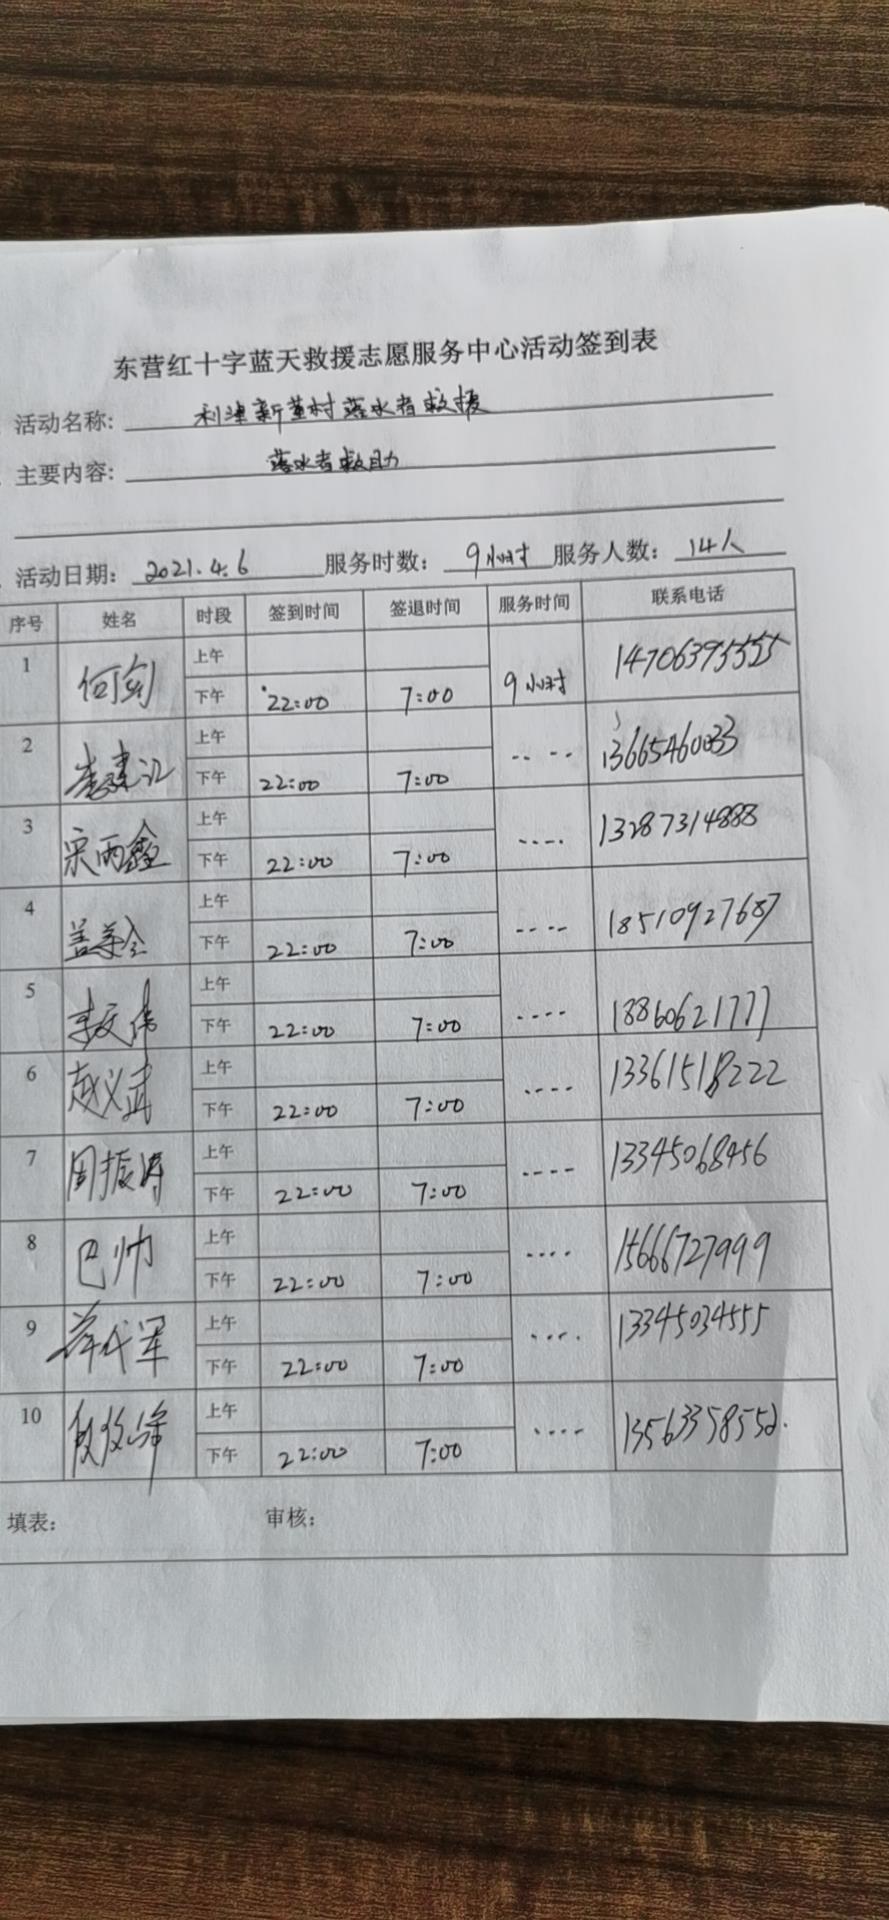 东营红十字蓝天救援志愿服务中心活动签到表
活动名称: 利津新董村落水者救援
主要内容: 落水者救助
活动日期: 2021.4.6 服务时数: 9小时 服务人数: 14人
序号 姓名 时段 签到时间 签退时间 服务时间 联系电话
1 何剑 上午 14706395555
下午 22:00 7:00 9小时
2 上午 13665460033
下午 22:00 7:00 ----
3 宋雨鑫 上午 13287314888
下午 22:00 7:00 ----
4 上午 18510927687
下午 22:00 7:00 ----
5 上午 18860621777
下午 22:00 7:00 ----
6 赵义武 上午 13361518222
下午 22:00 7:00 ----
7 周振涛 上午 13345068456
下午 22:00 7:00 ----
8 巴帅 上午 15666727999
下午 22:00 7:00 ----
9 上午 13345034555
下午 22:00 7:00 ----
10 上午
下午 22:00 7:00 ----
填表: 审核: